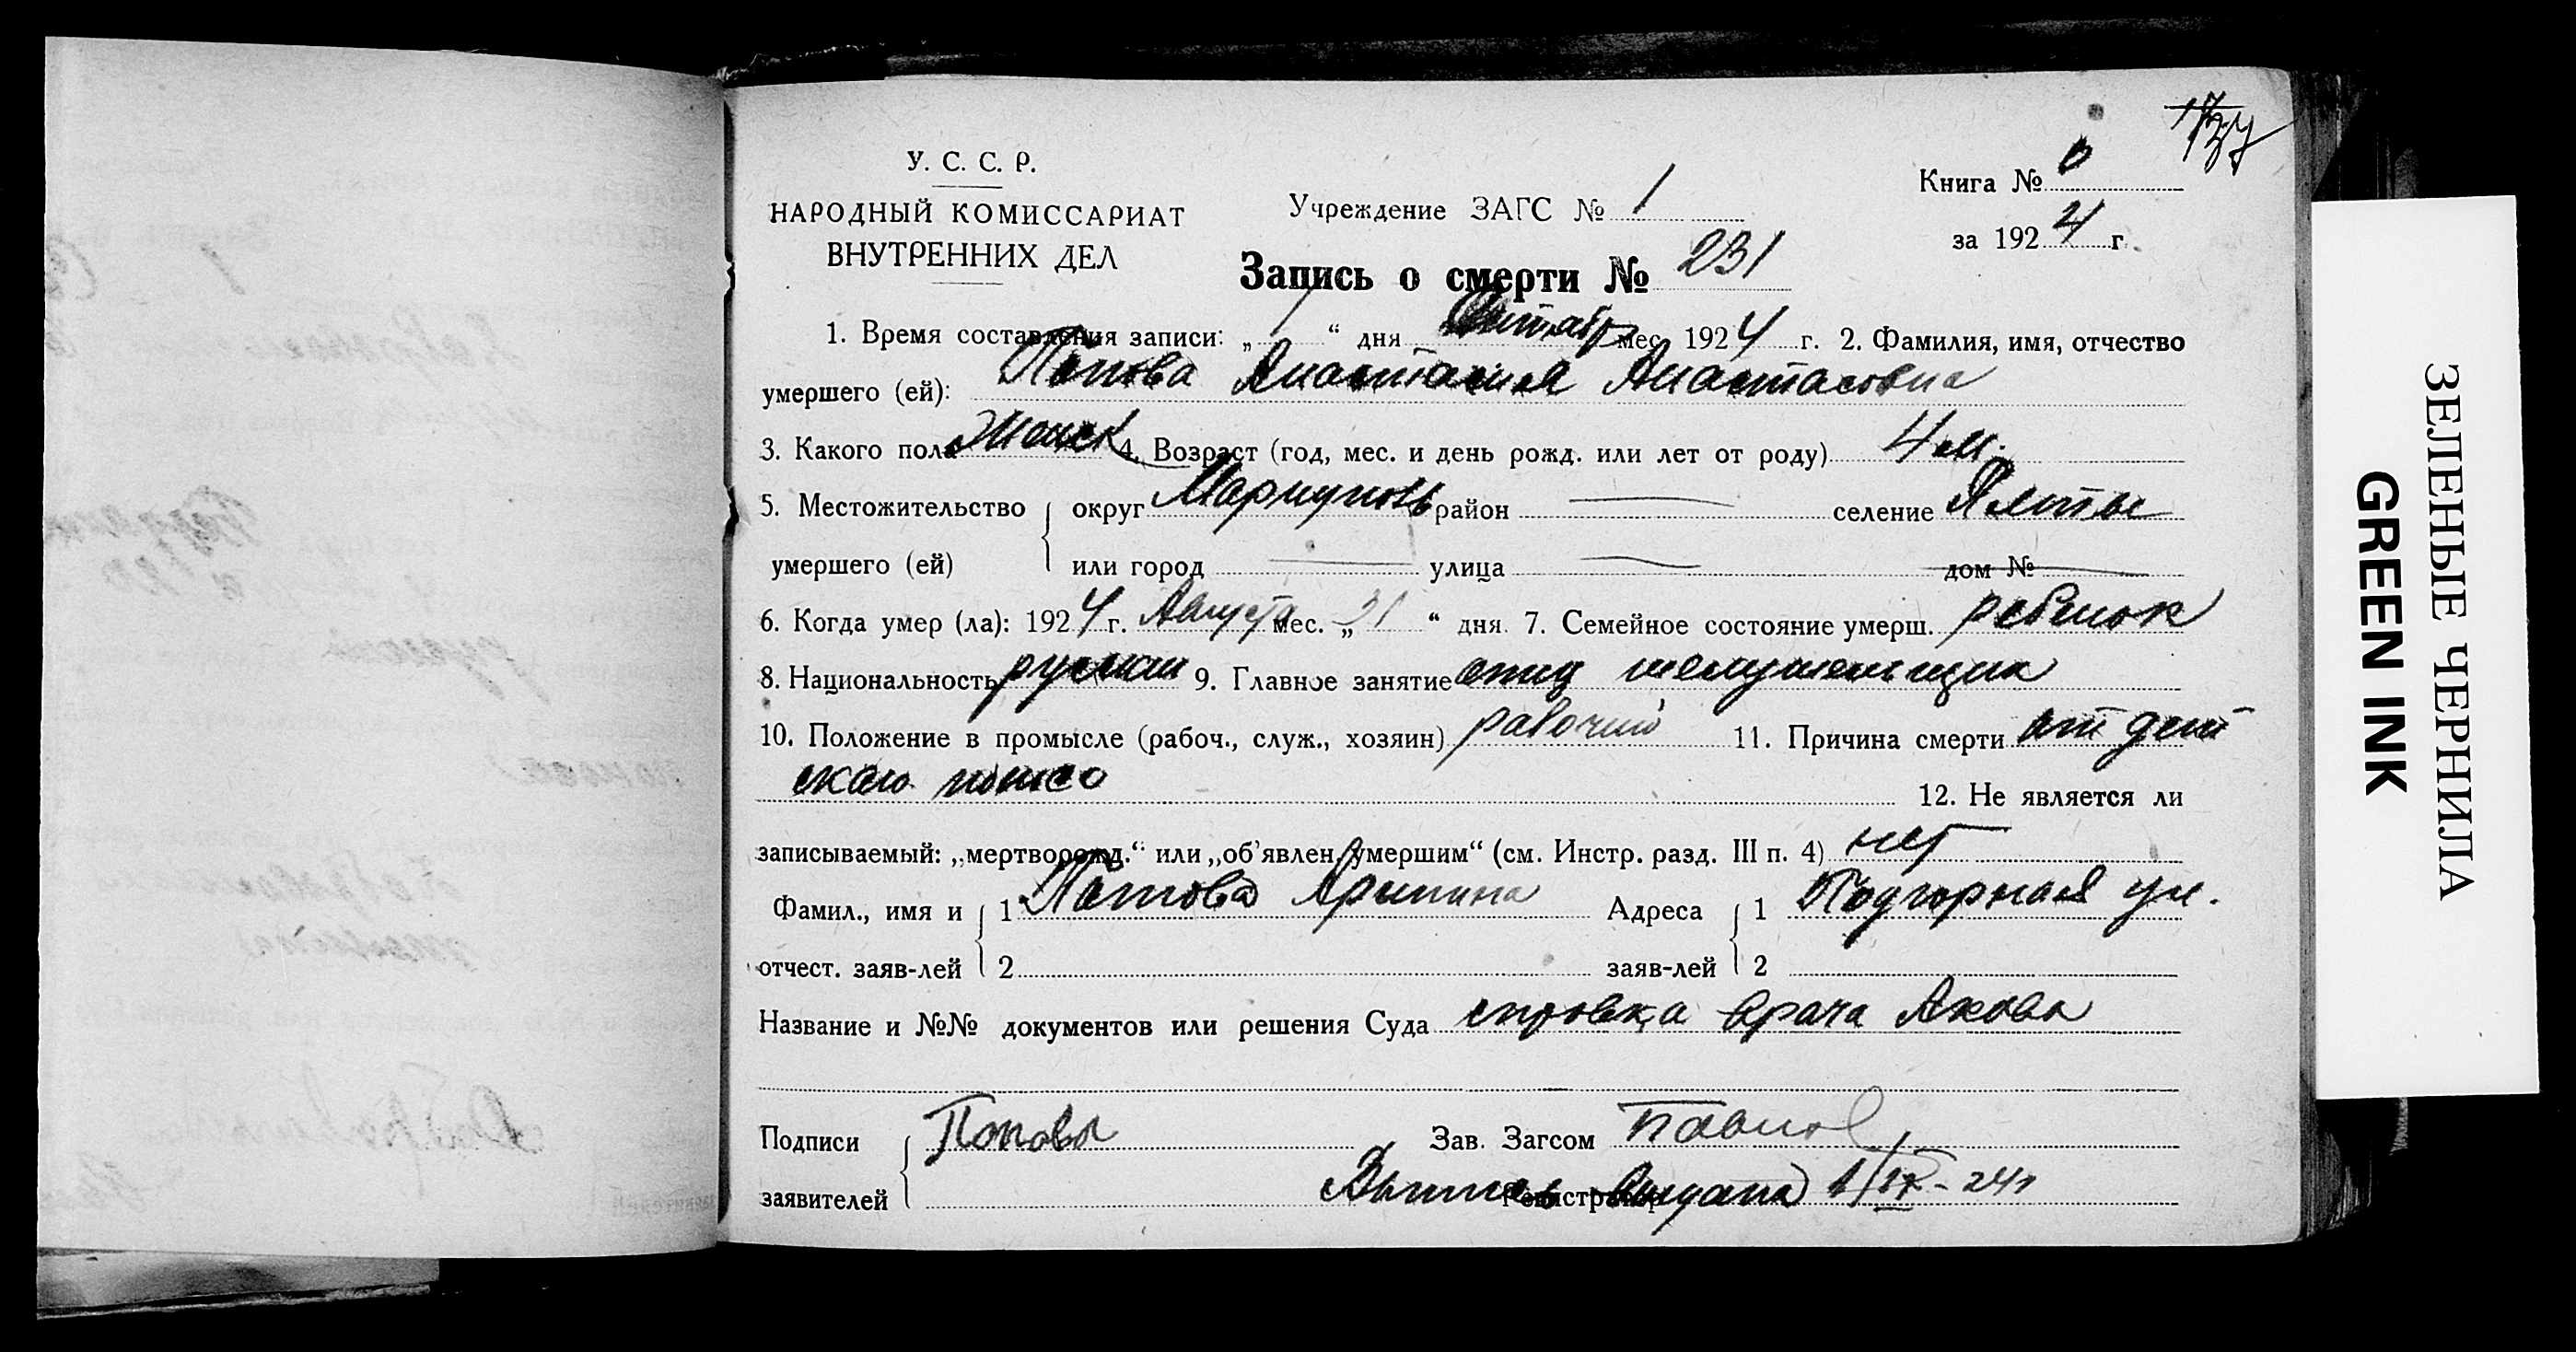 У. С. С. Р.
НАРОДНЫЙ КОМИССАРИАТ
ВНУТРЕННИХ ДЕЛ
Учреждение ЗАГС № 1
Книга №
за 1924 г.
Запись о смерти № 231
1. Время составления записи: „ 1 “ дня мес. 1924 г. 2. Фамилия, имя, отчество
умершего (ей): Попова Анастасия Анастасовна
3. Какого пола Женск 4. Возраст (год, мес. и день рожд. или лет от роду) 4 м.
5. Местожительство округ Мариуполь район — селение Ялты
умершего (ей) или город — улица — дом № —
6. Когда умер (ла): 1924 г. Августа мес. „ 31 “ дня. 7. Семейное состояние умерш. ребенок
8. Национальность русская 9. Главное занятие отец
10. Положение в промысле (рабоч., служ., хозяин) рабочий 11. Причина смерти от дет
ского 12. Не является ли
записываемый: „мертворожд.“ или „об’явлен. умершим“ (см. Инстр. разд. III п. 4) нет
Фамил., имя и 1 Попова Адреса 1 Подгорная ул.
отчест. заяв-лей 2 заяв-лей 2
Название и №№ документов или решения Суда справка врача
Подписи Попова Зав. Загсом
заявителей Регистратор 1/IX - 24г
ЗЕЛЕНЫЕ ЧЕРНИЛА
GREEN INK